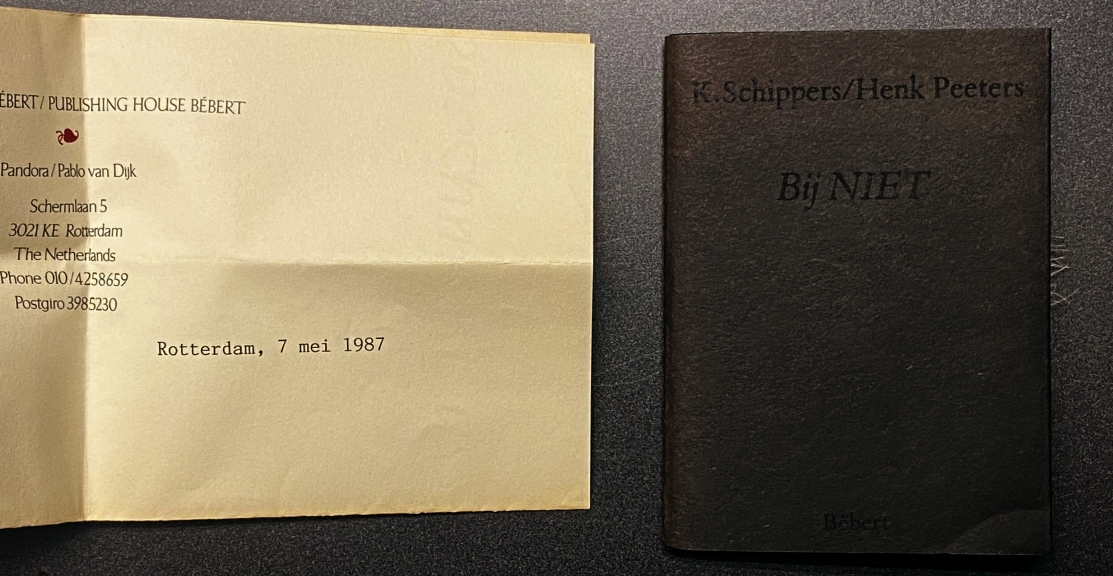 ÉBERT / PUBLISHING HOUSE BÉBERT
Pandora / Pablo van Dijk
Schermlaan 5
3021 KE Rotterdam
The Netherlands
Phone 010/4258659
Postgiro 3985230
Rotterdam, 7 mei 1987
K. Schippers/Henk Peeters
Bij NIET
Bébert